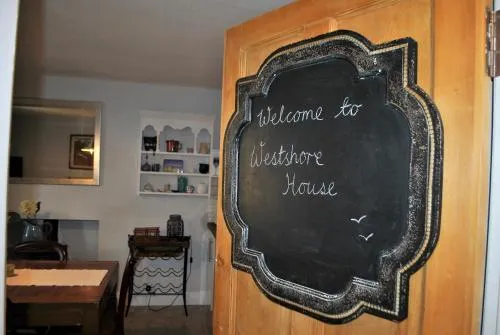 Welcome to
Westshore
House